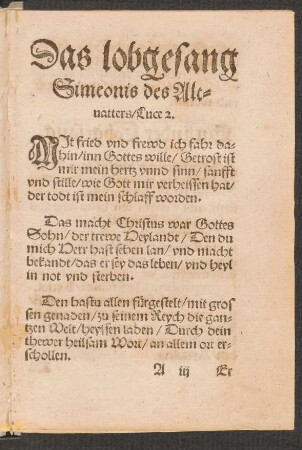 Das lobgesang
Simeonis des Alt-
uatters/Luce 2.
MIt fried vnd frewd ich fahr da-
hin/inn Gottes wille/Getrost ist
mir mein hertz vnnd sinn/sanfft
vnd stille/wie Gott mir verheissen hat/
der todt ist mein schlaff worden.
Das macht Christus war Gottes
Sohn/der trewe Heylandt/Den du
mich Herr hast sehen lan/vnd macht
bekandt/das er sey das leben/vnd heyl
in not vnd sterben.
Den hastu allen fürgestelt/mit gros
sen genaden/zu seinem Reych die gan-
tzen Welt/heyssen laden/Durch dein
thewer heilsam Wort/an allem ort er-
schollen.
A iij Er